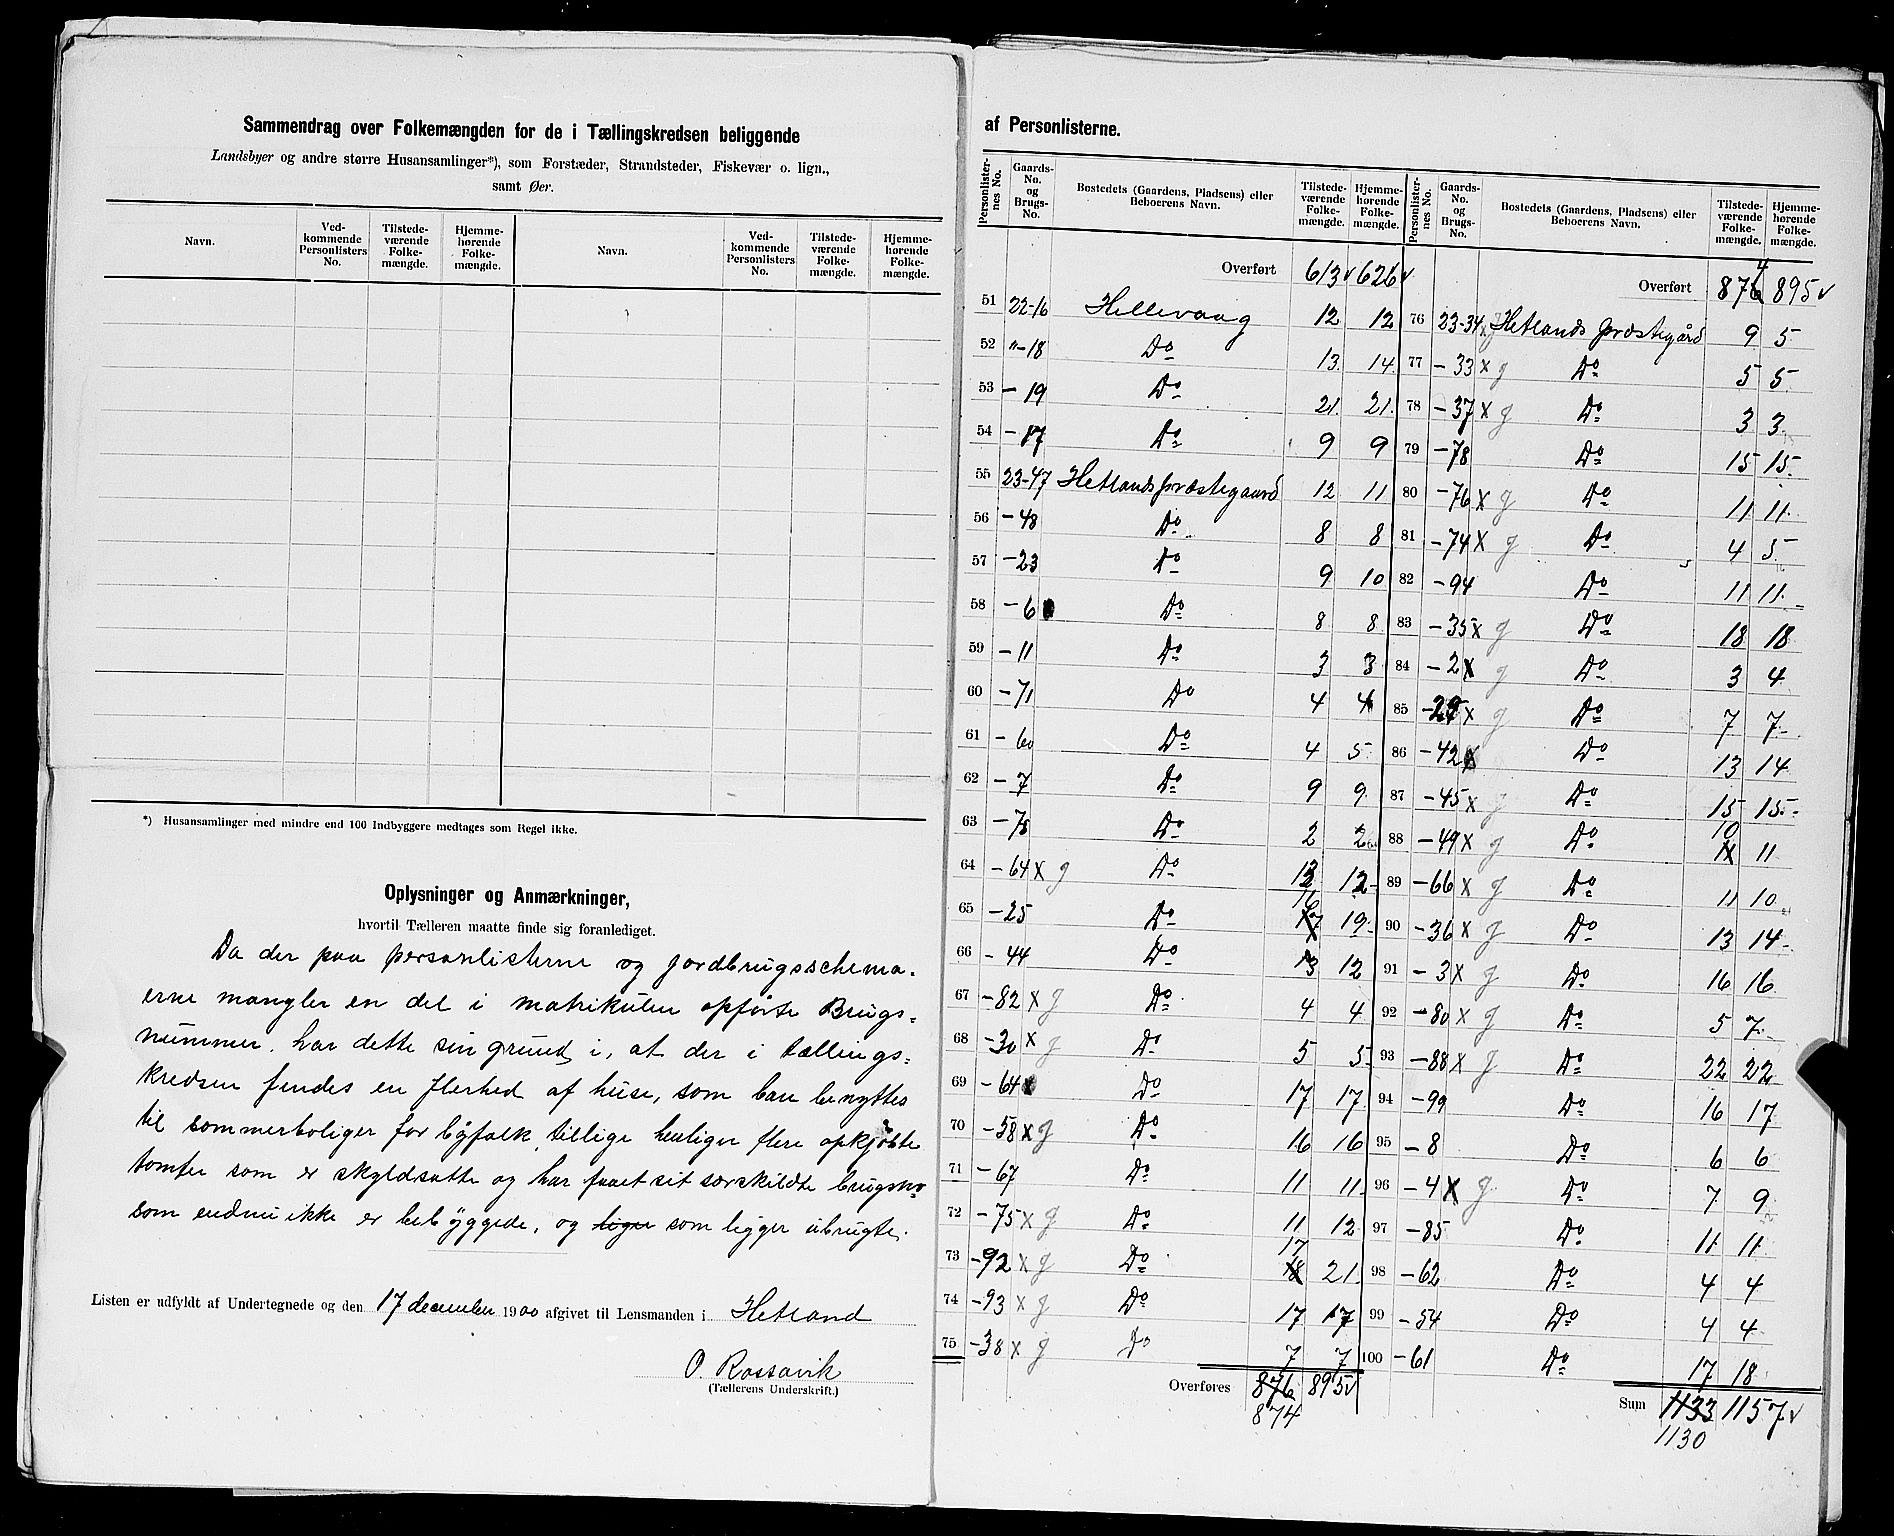 Sammendrag over Folkemængden for de i Tællingskredsen beliggende
Landsbyer og andre større Husansamlinger*), som Forstæder, Strandsteder, Fiskevær o. lign.,
samt Øer.
Navn. Ved-kommende Personlisters No. Tilstede-værende Folke-mængde. Hjemme-hørende Folke-mængde. Navn. Ved-kommende Personlisters No. Tilstede-værende Folke-mængde. Hjemme-hørende Folke-mængde.
*) Husansamlinger med mindre end 100 Indbyggere medtages som Regel ikke.
Oplysninger og Anmærkninger,
hvortil Tælleren maatte finde sig foranlediget.
Da der paa personlisterne og jordbrugsschema-
erne mangler en del i matrikulen opførte Brugs=
nummer, har dette sin grund i, at der i tællings=
kredsen findes en flerhed af huse, som bare benyttes
til sommerboliger for byfolk, tillige henligger flere opkjøbte
tomter som er skyldsatte og har faaet sit særskildte brugsno
som endnu ikke er bebyggede, og ligger som ligger ubrugte.
Listen er udfyldt af Undertegnede og den 17 december 1900 afgivet til Lensmanden i Hetland
O. Rossavik
(Tællerens Underskrift.)
af Personlisterne.
Personlister-nes No. Gaards-No. og Brugs-No. Bostedets (Gaardens, Pladsens) eller Beboerens Navn. Tilstede-værende Folke-mængde. Hjemme-hørende Folke-mængde.
Overført 613 v 626 v
51 22-16 Hillevaag 12 12
52 "-18 Do 13 14
53 -19 Do 21 21
54 -17 Do 9 9
55 23-47 Hetlands præstegaard 12 11
56 -48 Do 8 8
57 -23 Do 9 10
58 -6 Do 8 8
59 -11 Do 3 3
60 -71 Do 4 4
61 -60 Do 4 5
62 -7 Do 9 9
63 -78 Do 2 2
64 -64 x g Do 12 12
65 -25 Do 16 17 19
66 -44 Do 13 12
67 -82 x g Do 4 4
68 -30 x g Do 5 5
69 -64 Do 17 17
70 -58 x g Do 16 16
71 -67 Do 11 11
72 -75 x g Do 11 12
73 -92 x g Do 17 18 21
74 -93 x g Do 17 17
75 -38 x g Do 7 7
Overføres 876 895 v
874
Personlister-nes No. Gaards-No. og Brugs-No. Bostedets (Gaardens, Pladsens) eller Beboerens Navn. Tilstede-værende Folke-mængde. Hjemme-hørende Folke-mængde.
Overført 876 4 895 v
76 23-34 x Hetlands præstegård 9 5
77 -33 x g Do 5 5
78 -37 x g Do 3 3
79 -78 Do 15 15
80 -76 x g Do 11 11
81 -74 x g Do 4 5
82 -94 Do 11 11
83 -35 x g Do 18 18
84 -2 x g Do 3 4
85 -29 x g Do 7 7
86 -42 x Do 13 14
87 -45 x g Do 15 15
88 -49 x g Do 10 11 11
89 -66 x g Do 11 10
90 -36 x g Do 13 14
91 -3 x g Do 16 16
92 -80 x g Do 5 7
93 -88 x g Do 22 22
94 -99 Do 16 17
95 -8 Do 6 6
96 -4 x g Do 7 9
97 -85 Do 11 11
98 -62 Do 4 4
99 -54 Do 4 4
100 -61 Do 17 18
Sum 1133 1157 v
1130